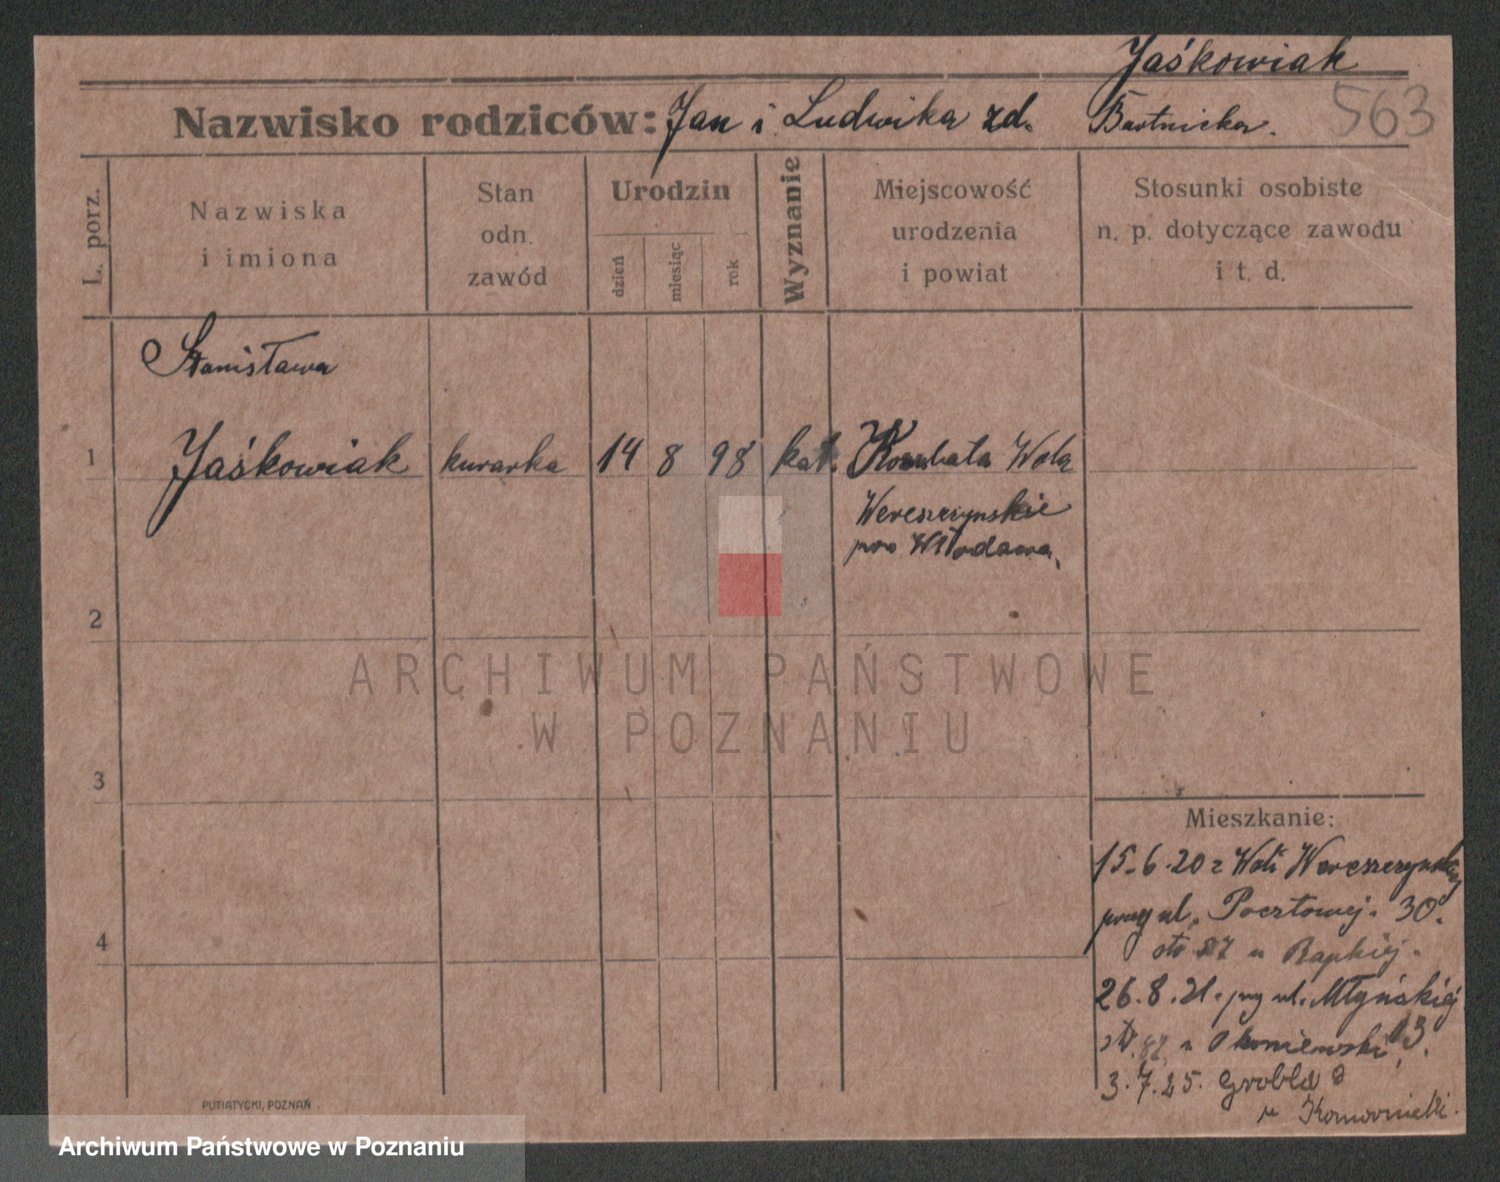 Jaśkowiak
Nazwisko rodziców: Jan i Ludwika zd. Bartnicka.
563
L. porz.
Nazwiska
i imiona
Stan
odn.
zawód
Urodzin
dzień
miesiąc
rok
Wyznanie
Miejscowość
urodzenia
i powiat
Stosunki osobiste
n. p. dotyczące zawodu
i t. d.
Stanisława
1 Jaśkowiak kucharka 14 8 98 kat. Wola
Wereszczyńskie
pow Włodawa,
2
3
4
ARCHIWUM PAŃSTWOWE
W POZNANIU
Mieszkanie:
15.6.20 z Woli Wereszczyńskiej
przy ul. Pocztowej. 30.
27 u
26.8.21. przy ul. Młyńskiej
u 13.
3.7.25. Grobla
u
PUTIATYCKI, POZNAŃ
Archiwum Państwowe w Poznaniu